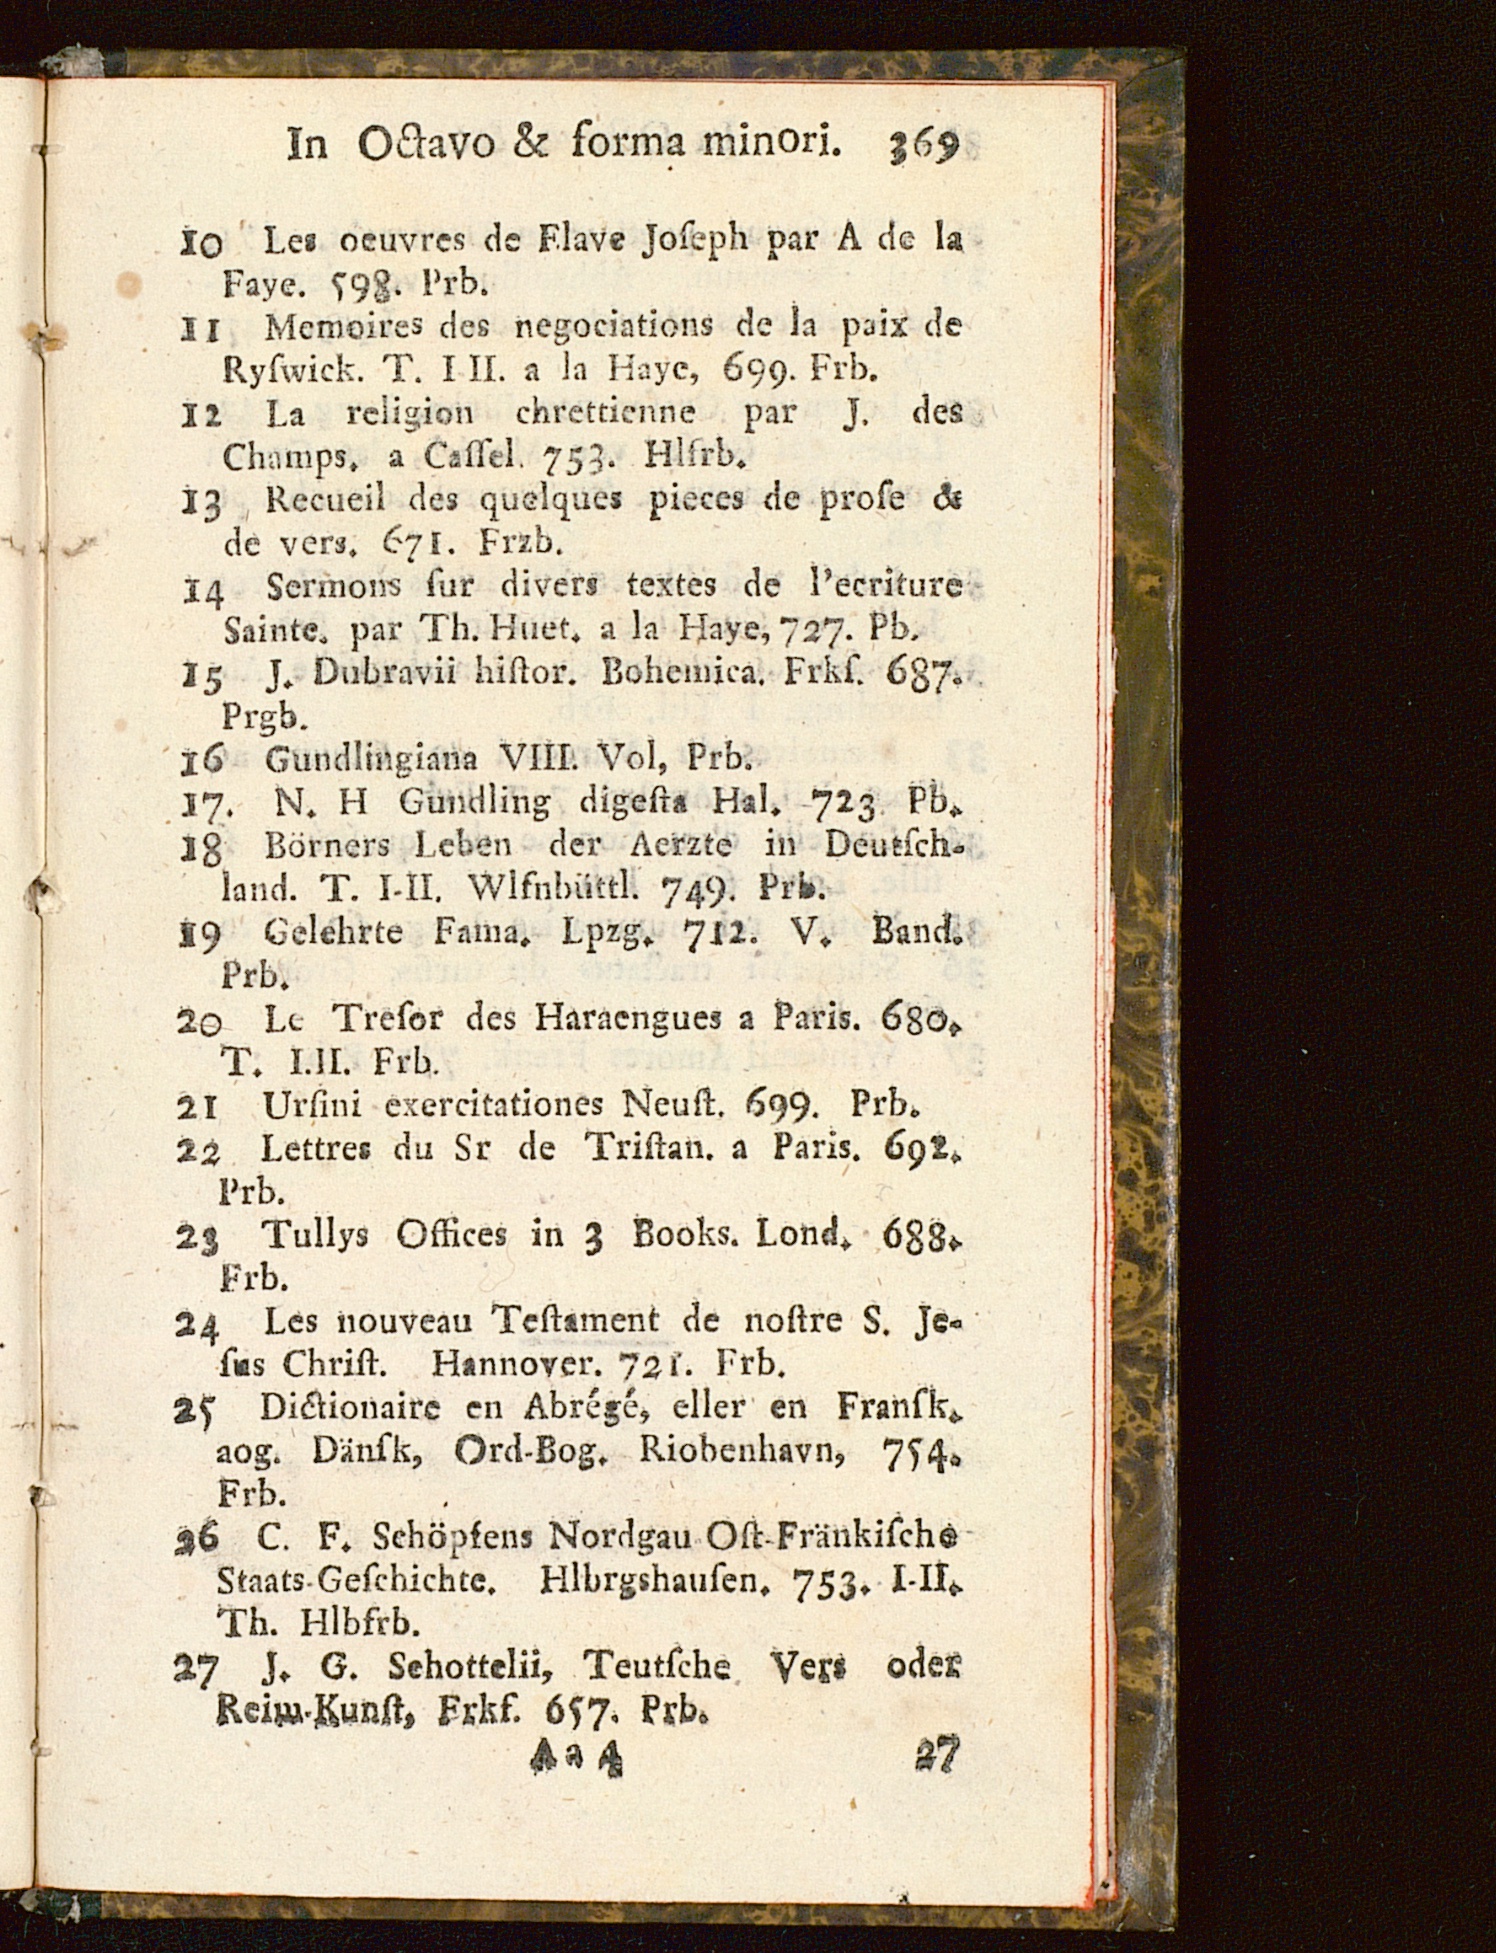 In Octavo & forma minori. 369
10 Les oeuvres de Flave Joſeph par A de la
Faye. 598. Prb.
11 Memoires des negociations de la paix de
Ryſwick. T. I II. a la Haye, 699. Frb.
12 La religion chrettienne par J. des
Champs. a Caſſel. 753. Hlfrb.
13 Recueil des quelques pieces de proſe &
de vers. 671. Frzb.
14 Sermons ſur divers textes de l'ecriture
Sainte. par Th. Huet. a la Haye, 727. Pb.
15 J. Dubravii hiſtor. Bohemica. Frkf. 687.
Prgb.
16 Gundlingiana VIII. Vol, Prb.
17. N. H Gundling digeſta Hal. 723 Pb.
18 Börners Leben der Aerzte in Deutſch-
land. T. I-II. Wlfnbüttl. 749. Prb.
19 Gelehrte Fama. Lpzg. 712. V. Band.
Prb.
20 Le Treſor des Haraengues a Paris. 680.
T. I.II. Frb.
21 Urſini exercitationes Neuſt. 699. Prb.
22 Lettres du Sr de Triſtan. a Paris. 692.
Prb.
23 Tullys Offices in 3 Books. Lond. 688.
Frb.
24 Les nouveau Teſtament de noſtre S. Je-
ſus Chriſt. Hannover. 721. Frb.
25 Dictionaire en Abrégé, eller en Franſk.
aog. Dänſk, Ord-Bog. Riobenhavn, 754.
Frb.
26 C. F. Schöpfens Nordgau Oſt-Fränkiſche
Staats-Geſchichte. Hlbrgshauſen. 753. I-II.
Th. Hlbfrb.
27 J. G. Sehottelii, Teutſche Vers oder
Reim-Kunſt, Frkf. 657. Prb.
A a 4 27